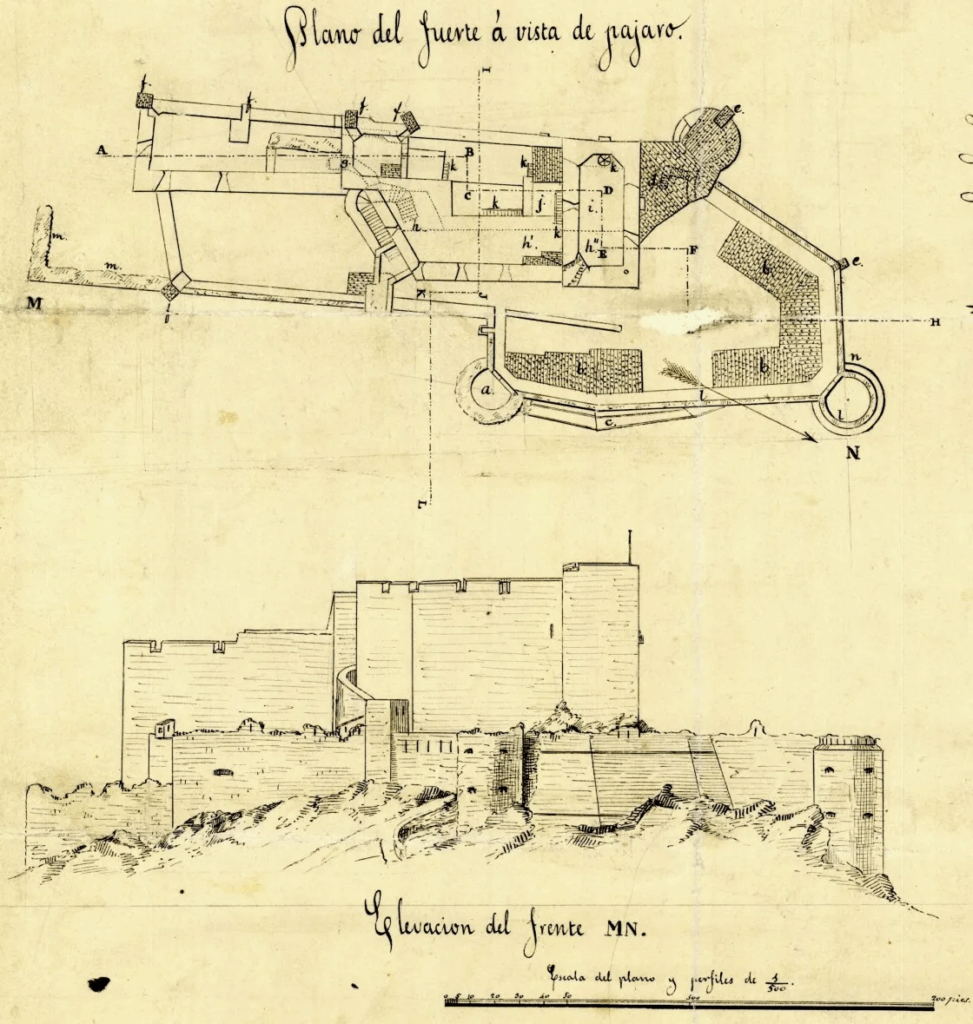 Plano del fuerte á vista de pajaro.
f. f. f. f. I e.
A B
g k k k
D
C d.
j. i.
m. k
h. k
h'. h" E F b. e.
m.
M K J
f H
b. b. n
a l
c. l
N
L
Elevacion del frente MN.
Escala del plano y perfiles de 1/500.
0 5 10 20 30 40 50 100 200 pies.